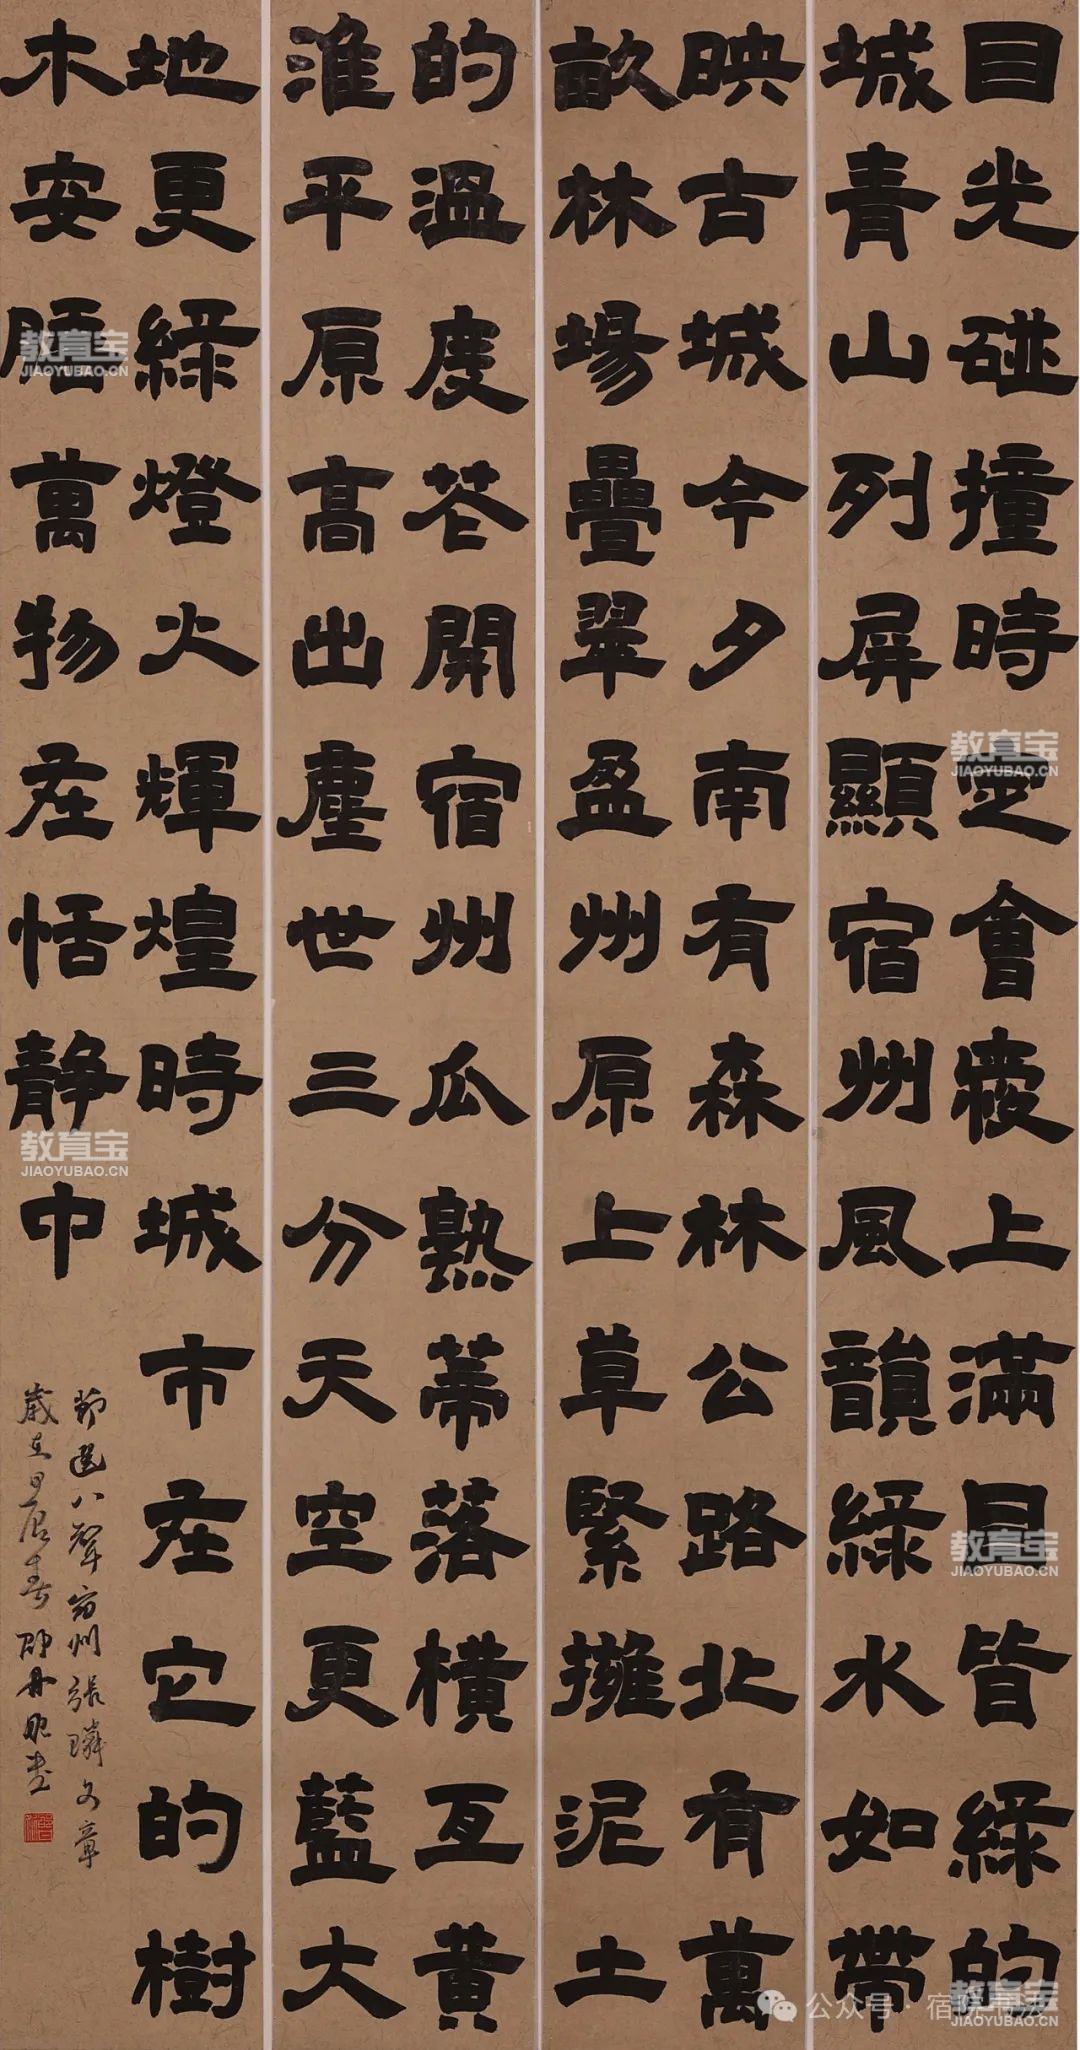 目光碰撞時定會愛上滿目皆綠的
城青山列屏顯宿州風韻綠水如帶
映古城今夕南有森林公路北有萬
畝林場疊翠盈州原上草緊擁泥土
的溫度花開宿州瓜熟蒂落橫亙黃
淮平原高出塵世三分天空更藍大
地更綠燈火輝煌時城市在它的樹
木安睡萬物在恬靜中
節選八聲宿州張璘文章
歲在甲辰春邵丹
教育宝
JIAOYUBAO.CN
教育宝
JIAOYUBAO.CN
教育宝
JIAOYUBAO.CN
教育宝
JIAOYUBAO.CN
教育宝
JIAOYUBAO.CN
公众号·宿院书法